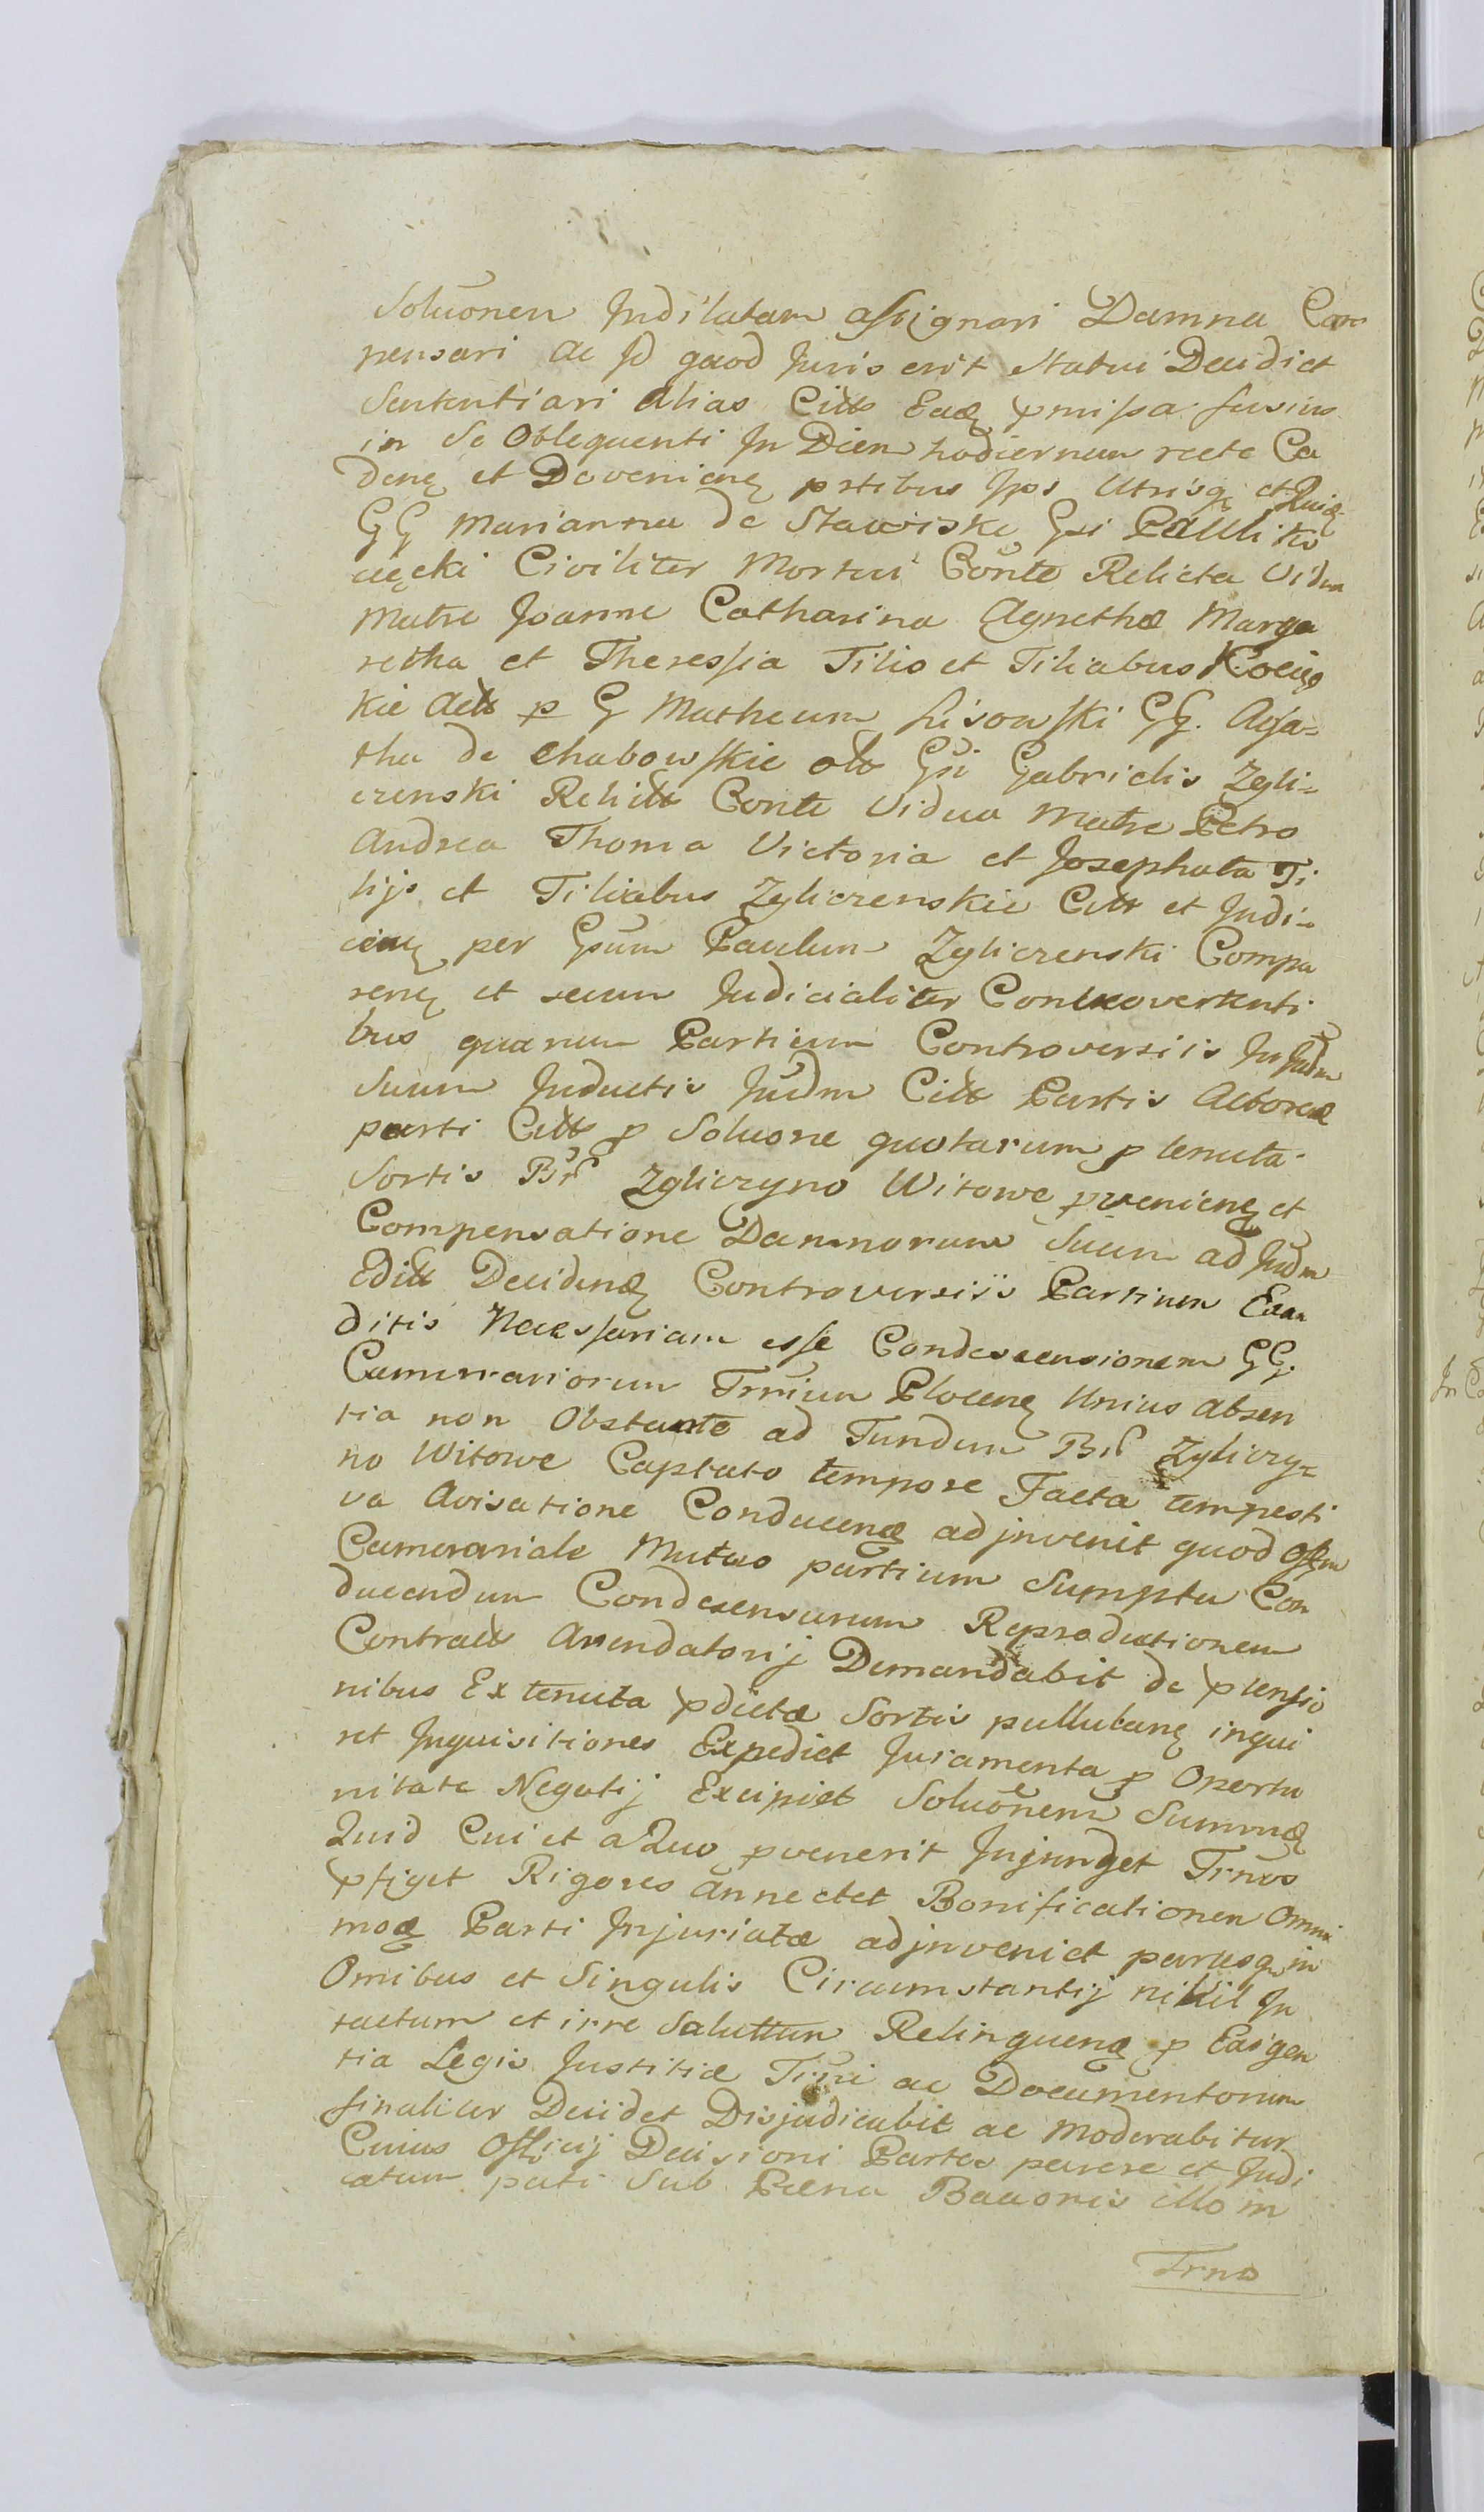 Soluonem Indilatam assignari Damna Com
pensari ac Id quod Juris erit Statui Decidi et
Sententiari alias Citt Eadẽ pmissa fusius
in Se Obloquenti In Diem hodiernum recte Ca
denẽ et Devenienẽ ptibus Ips Utrisq et
GG Marianna de Stawiskie Gsi Pauli Ko
cięcki Civiliter Mortui Conte Relicta Vidua
Matre Joanne Catharina Agnetha Marga
retha et Theressia Filio et Filiabus Kocięc
kie Actt p G Matheum Lisowski GG. Aga=
tha de Chabowskie olt Gsi Gabrielis Zgli=
czenski Relictt Conte Vidua Matre Petro
Andrea Thoma Victoria et Josephata Fi
lijs et Filiabus Zgliczenskie Citt et Judi=
cienẽ per Gsum Paulum Zgliczenski Compa
renẽ et secum Judicialiter Controvertenti
bus quarum Partium Controversiis In Judm
Suum Inductis Judm Citt Partis Actoreæ
parti Citt p Soluone quotarum p tenuta
Sortis Br Zgliczyno Witowe pvenienẽ et
Compensatione Damnorum Suum ad Judm
Editt Decidenẽ Controversiis Partium Exau
ditis Necessariam esse Condescensionem GG.
Camerariorum Trrium Plocenẽ Unius absen
tia non Obstante ad Fundum Br Zgliczy=
no Witowe Captato tempore Facta tempesti
va Avisatione Conducenẽ adjnvenit quod Offm
Camerariale Mutuo partium Sumptu Con
ducendum Condescensurum Reproductionem
Contractt Arendatorij Demandabit de ptensio
nibus Ex tenuta pdictæ Sortis pullulanẽ inqui
ret Inquisitiones Expediet Juramenta p Oportu
nitate Negotij Excipiet Soluonem Summẽ
Quid Cui et a Quo pvenerit Injunget Trnos
pfiget Rigores annectet Bonificationem Omni
modẽ Parti Injuriatæ adjnveniet parusq in
Omibus et Singulis Circumstantij nihil In
tactum et irre Saluttum Relinquenẽ p Exigen
tia Legis Justitiæ Trni ac Documentorum
finaliter Decidet Disjudicabit ac Moderabitur
Cuius Officij Decisioni Partes parere et Judi
catum pati Sub Pæna Baaonis illo in
Trno